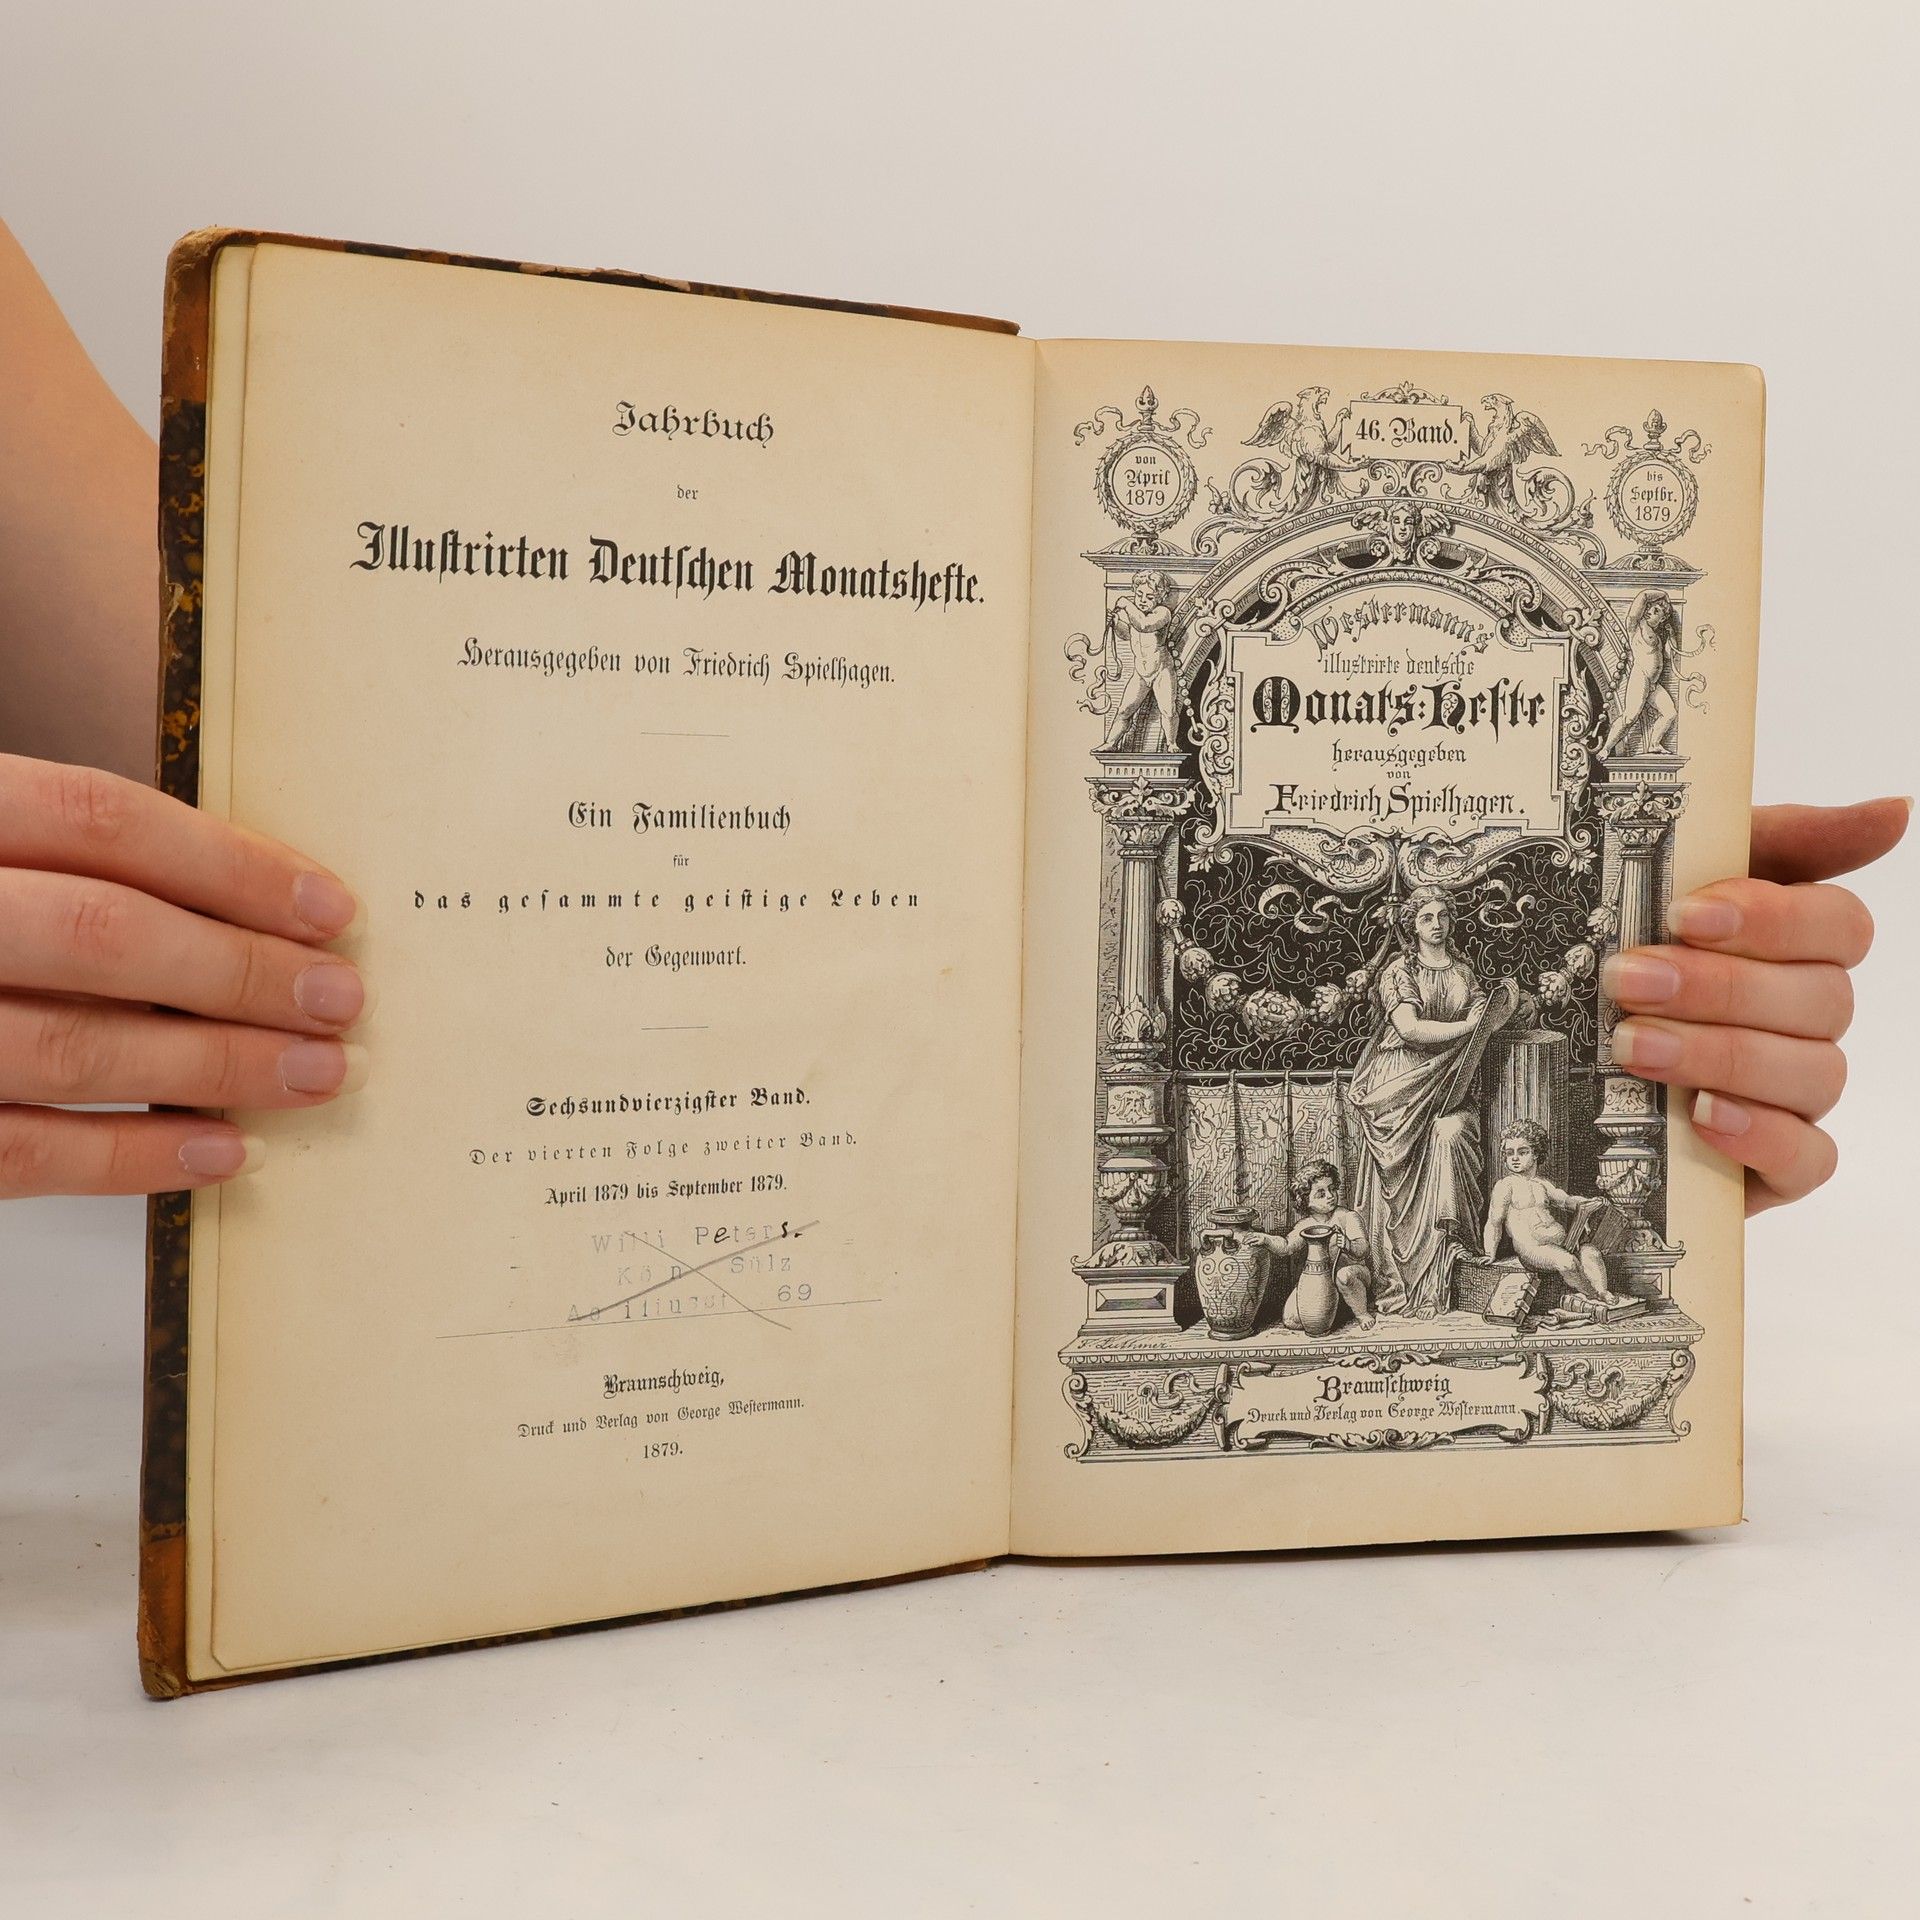 Jahrbuch
der
Illustrirten Deutschen Monatshefte.
Herausgegeben von Friedrich Spielhagen.
Ein Familienbuch
für
das gesammte geistige Leben
der Gegenwart.
Sechsundvierzigster Band.
Der vierten Folge zweiter Band.
April 1879 bis September 1879.
Willi Peters.
Köln Sülz
69
Braunschweig,
Druck und Verlag von George Westermann.
1879.
46. Band.
von
April
1879
bis
Septbr.
1879
Westermann's
illustrirte deutsche
Monats:Hefte
herausgegeben
von
Friedrich Spielhagen.
F. Luthmer.
Braunschweig
Druck und Verlag von George Westermann.